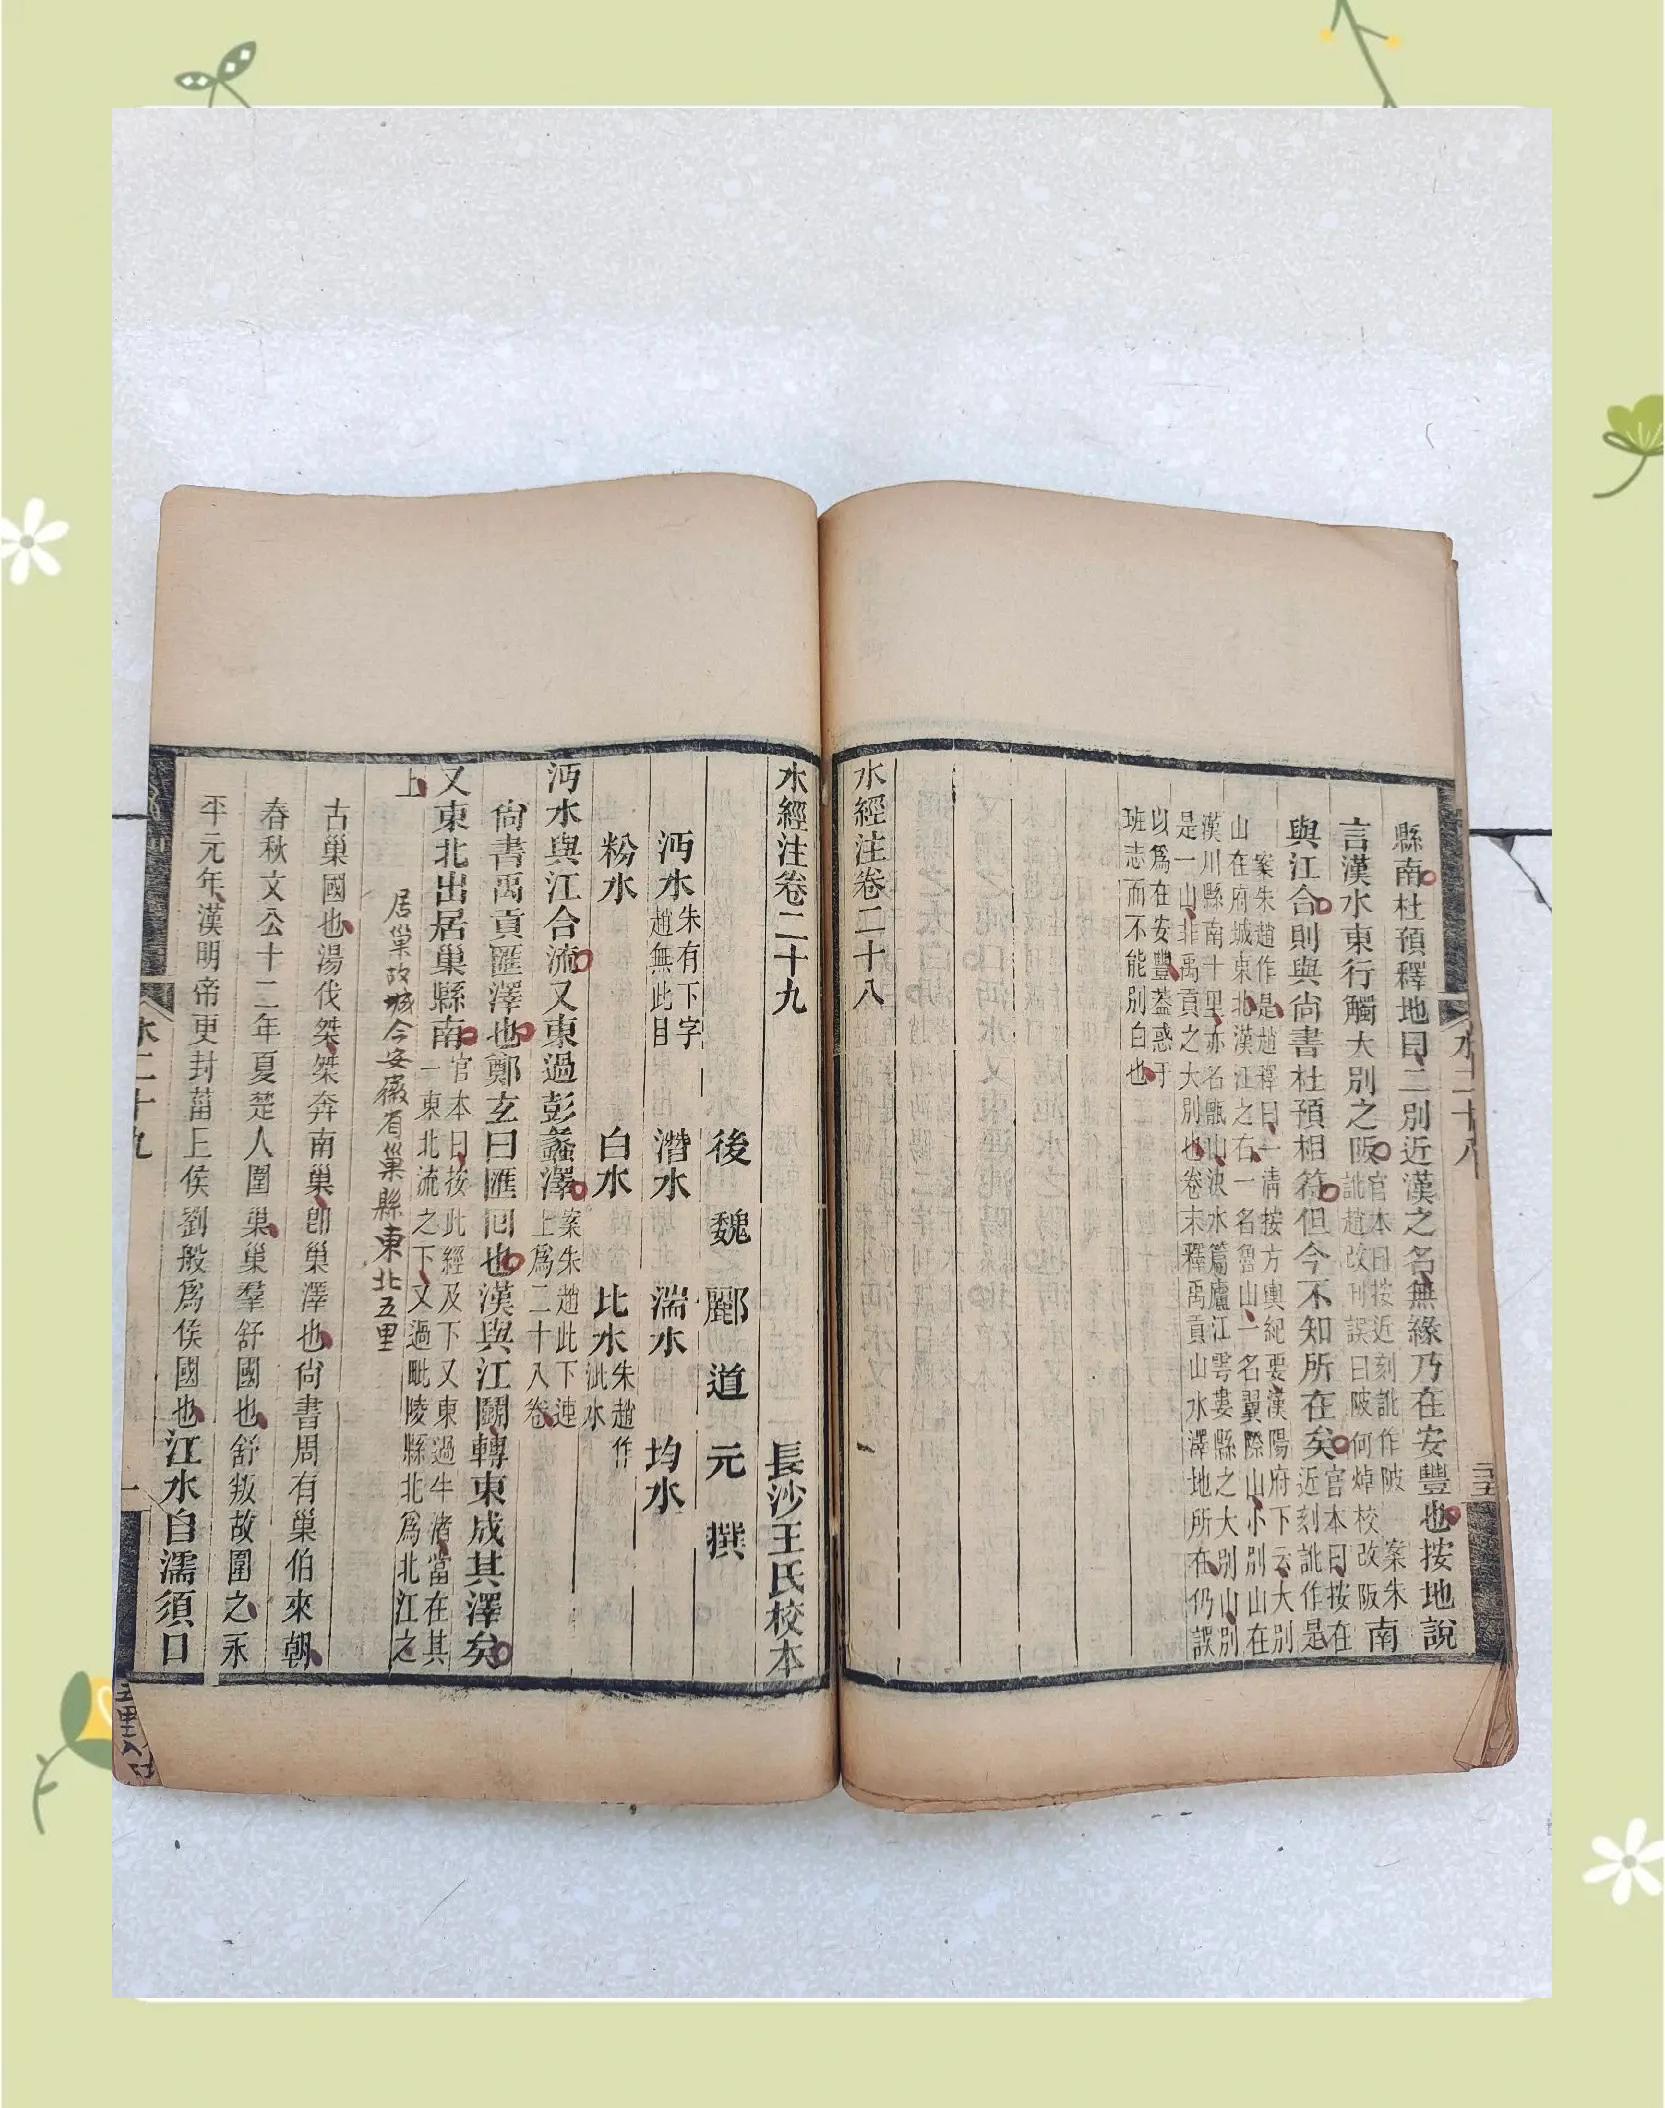 縣南杜預釋地曰二別近漢之名無緣乃在安豐也按地說
言漢水東行觸大別之阪官本曰按近刻訛作陂 案朱訛趙改刊誤曰陂何焯校改阪南
與江合則與尚書杜預相符但今不知所在矣官本曰按在近刻訛作是
案朱趙作是趙釋曰一清按方輿紀要漢陽府下云大別
山在府城東北漢江之右一名魯山一名翼際山小別山在
漢川縣南十里亦名甑山決水篇廬江雩婁縣之大別山別
是一山非禹貢之大別也卷末釋禹貢山水澤地所在仍誤
以爲在安豐蓋惑于
班志而不能別白也
水經注卷二十八
水二十八
水經注卷二十九
長沙王氏校本
後魏酈道元撰
沔水朱有下字趙無此目 潛水 湍水 均水
粉水 白水 比水朱趙作沘水
沔水與江合流又東過彭蠡澤案朱趙此下連上爲二十八卷
尚書禹貢匯澤也鄭玄曰匯回也漢與江鬭轉東成其澤矣
又東北出居巢縣南官本曰按此經及下又東過牛渚當在其一東北流之下又過毗陵縣北爲北江之
上
居巢故城今安徽省巢縣東北五里
古巢國也湯伐桀桀奔南巢卽巢澤也尚書周有巢伯來朝
春秋文公十二年夏楚人圍巢巢羣舒國也舒叛故圍之永
平元年漢明帝更封菑丘侯劉般爲侯國也江水自濡須口
水二十九
一